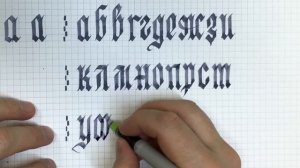 а а абвгдежзи
клмнопрст
у